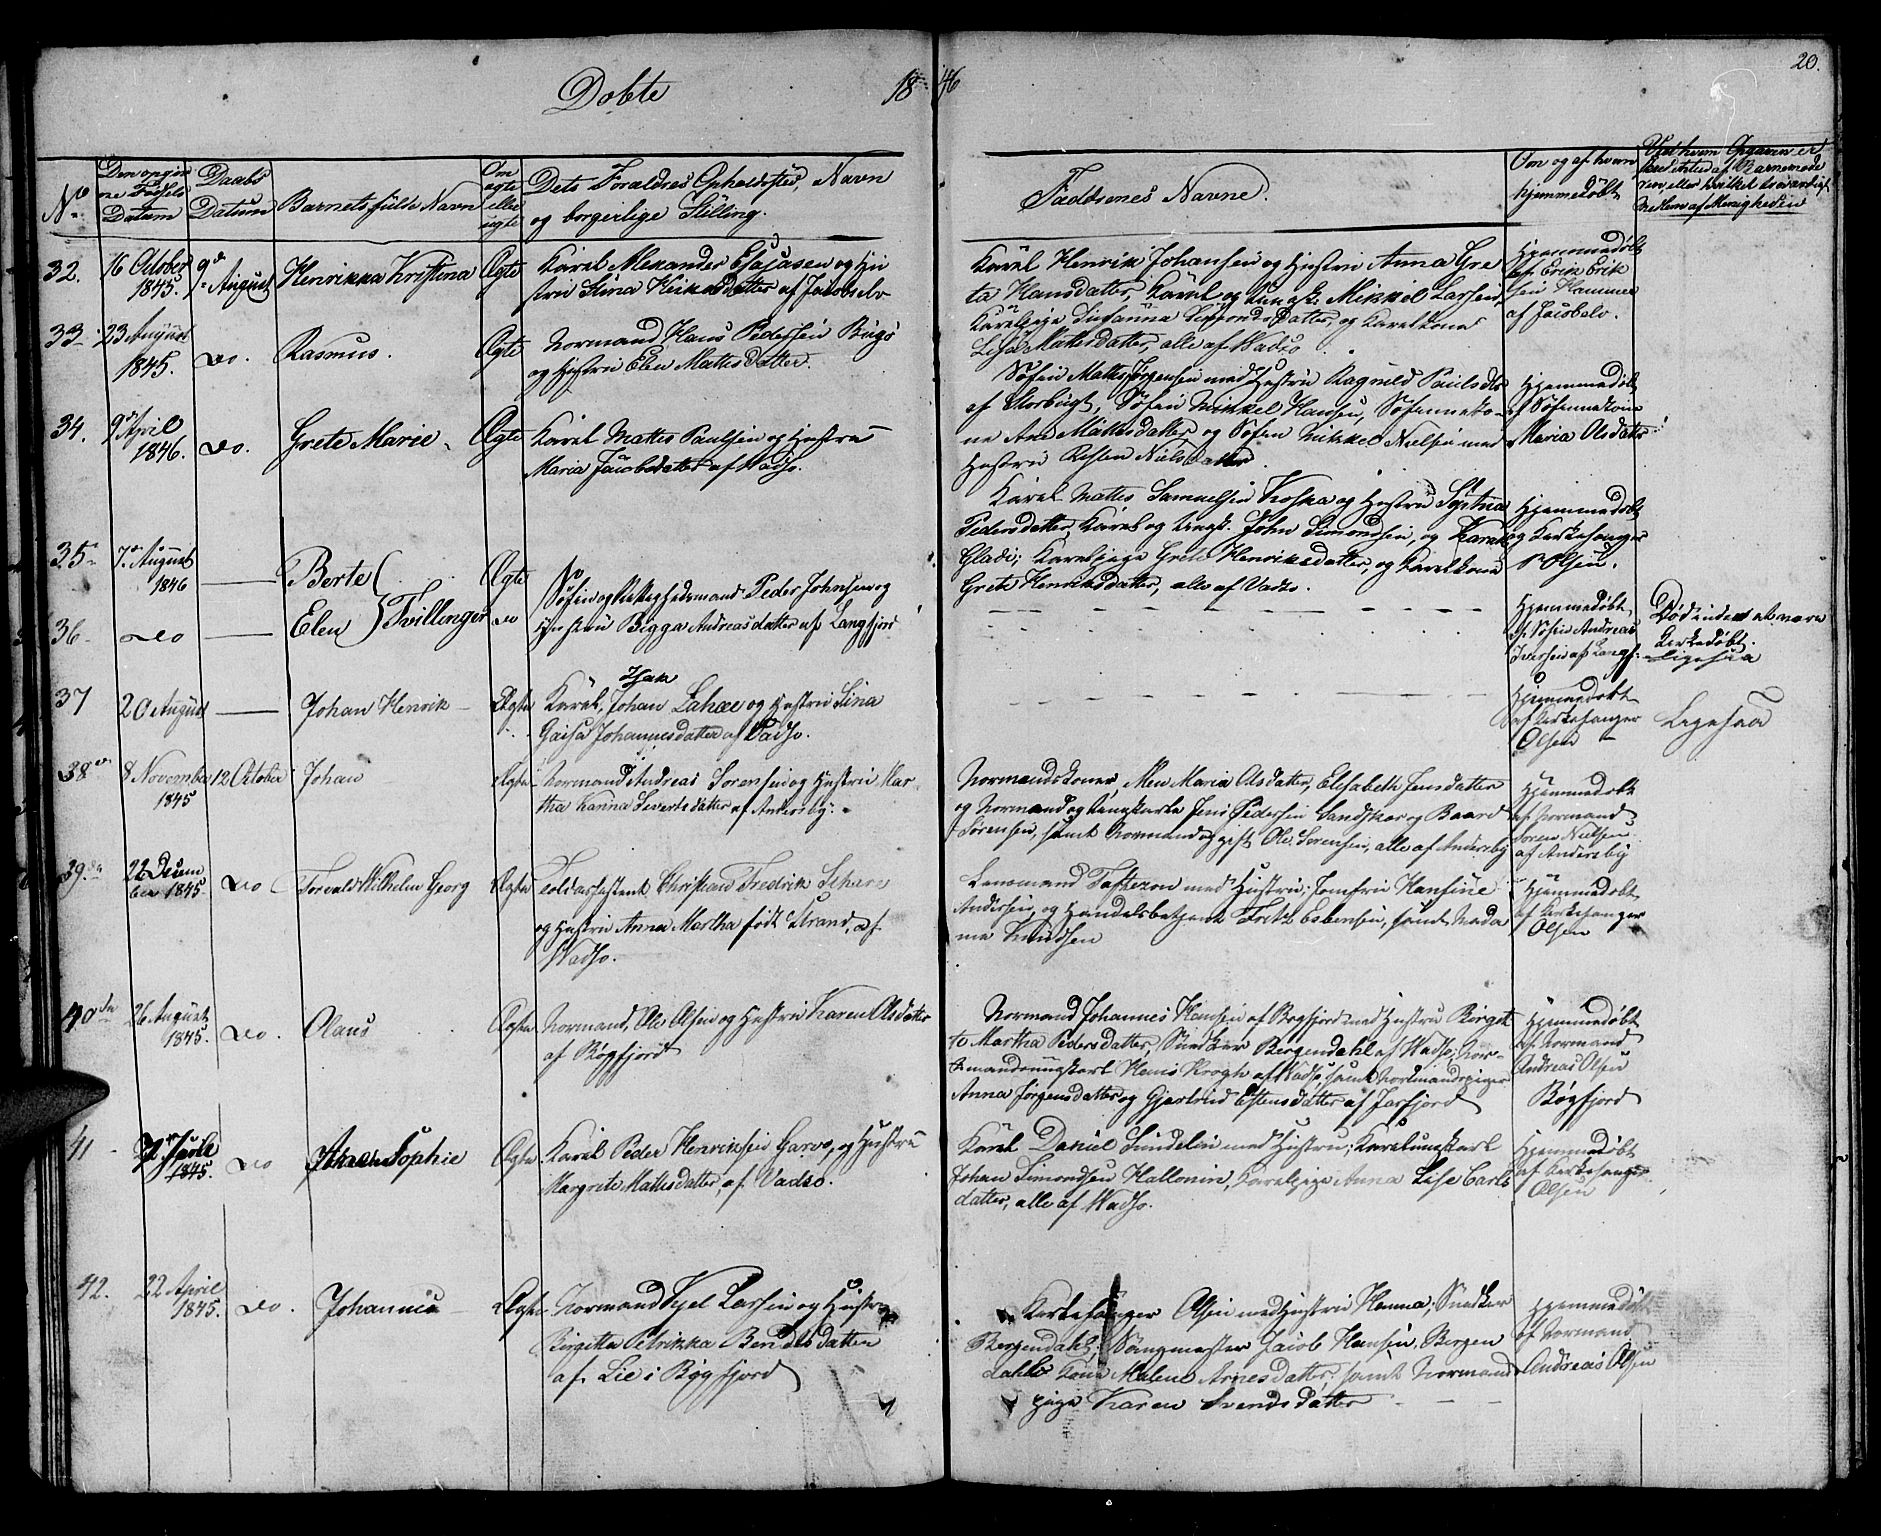 20.
Döbte 18 46
No
Den opgiv
ne Fødsels
Datum
Daabs
Datum
Barnets fulde Navn
Om
ægte
eller
uægte
Dets Foraldres Opholdsted, Navn
og borgerlige Stilling.
Faddrenes Navne.
Om og af hvem
hjemmedøbt
32. 16 October 1845. 9de August Henrikka Kristina Ægte
Kärel Alexander Esajasen og Hu
stru Stina Heikesdatter af Jacobselv
Kärel Henrik Johansen og Hustru Anna Gre
ta Hansdatter, Kärel og Ungk. Mikkel Larsen,
Karelpige Susanna Simonsdatter, og Karelkone
Lisa Mattesdatter, alle af Wadsø
Hjemmedøbt
af Erik Erik
sen Hammer
af Jacobelv.
33. 23 August 1845. do. Rasmus. Ægte
Normand Hans Pedersen Bugø
og Hustru Elen Mattisdatter.
Søfin Mattis Jørgensen med Hustru Ragnild Paulsdtr
af Storbugt, Søfin Mikkel Hansen, Søfinneko-
ne Ane Mattesdatter og Søfin Mikkel Nielsen med
Hustru Kirsten Nielsdatter.
Hjemmedøbt
af Søfinnekone
Maria Olsdatter
34. 9de April 1846. do. Grete Marie Ægte
Kärel Mattis Paulsen og Hustru
Maria Jacobsdatter af Wadsø.
Kärel Mattes Samuelsen Koska og Hustru Stina
Pedersdatter, Kärel og Ungk. John Simondsen, og Karel
Gladi; Karelpige Grete Henriksdatter, og Karelkone
Grete Henriksdatter, alle af Vadsø.
Hjemmedøbt
og Kirkesanger
Olsen.
35 7de August 1846 Berte Ægte
36 do Elen } Tvillinger do
Søfin og Rettighedsmand Peder Johnsen og
Hustru Bigga Andreasdatter af Langfjord
Hjemmedøbt
af Søfin Andreas
Iversen af Langf:
Død inden at være
kirkedøbt.
Ligesaa
37 20 August Johan Henrik Ægte
Isak
Kärel, Johan Lahae og Hustru Lina
Gaisa Johannesdatter af Vadsø.
Hjemmedøbt
af Kirkesanger
Olsen
Ligesaa
38 8 November 1845 12 October Johan Ægte
Normand Andreas Sorensen og Hustru Mar
tha Hanna Sivertsdatter af Andersby.
Normandskoner, Men Maria Olsdatter, Elisabeth Jensdatter
og Normand og ungkarle Jens Pedersen Sandskar og Baard
Sørensen, samt Normand og gift Ole Sorensen, alle af Andersby
Hjemmedøbt
af Normand
Søren Nielsen
af Andersby
39 22 Decem
ber 1845. do Torvald Wilhelm Georg Ægte
Toldassistent Christian Fredrik Schare
og Hustru Anna Martha født Strand, af
Wadsø.
Lensmand Taftezon med Hustru; Jomfru Hansine
Andersen, og Handelsbetjent Fritz Esbensen, samt Mada
me Knudsen
Hjemmedøbt
af Kirkesanger
Olsen
40de 26 August 1845. do. Olaus. Ægte
Normand, Ole Olsen og Hustru Karen Olsdatter
af Bøgfjord
Normand Johannes Hansen af Bøgfjord med Hustru Birgit
te Martha Pedersdatter, Snedker Bergendahl af Wadsø, Nor-
mandsungkarl Hans Krogh af Wadsø, samt Normandspiger
Anna Jørgensdatter og Gjertrud Estensdatter af Jarfjord
Hjemmedøbt
af Normand
Andreas Olsen
Bøgfjord
41 1845. do Sophie Ægte
Kärel Peder Henriksen Garvo, og Hustru
Margrete Mattesdatter, af Vadsø.
Kärel Daniel Sundelin med Hustru; Karelungkarl
Johan Simondsen Hallonin, Karelpige Anna Lise Carls
datter, alle af Wadsø.
Hjemmedøbt
af Kirkesanger
Olsen
42. 22 April 1845. do. Johannes Ægte
Normand Kjel Larsen og Hustru
Birgitta Petrikka Bendesdatter
af Lie i Bøgfjord
Kirkesanger Olsen med Hustru Hanna; Snedker
Bergendahl; Sangmester Jacob Hansen, Bergen
dahls kone Malene Arnesdatter, samt Normand
pige Karen Svendsdatter
Hjemmedøbt
af Normand
Andreas Olsen